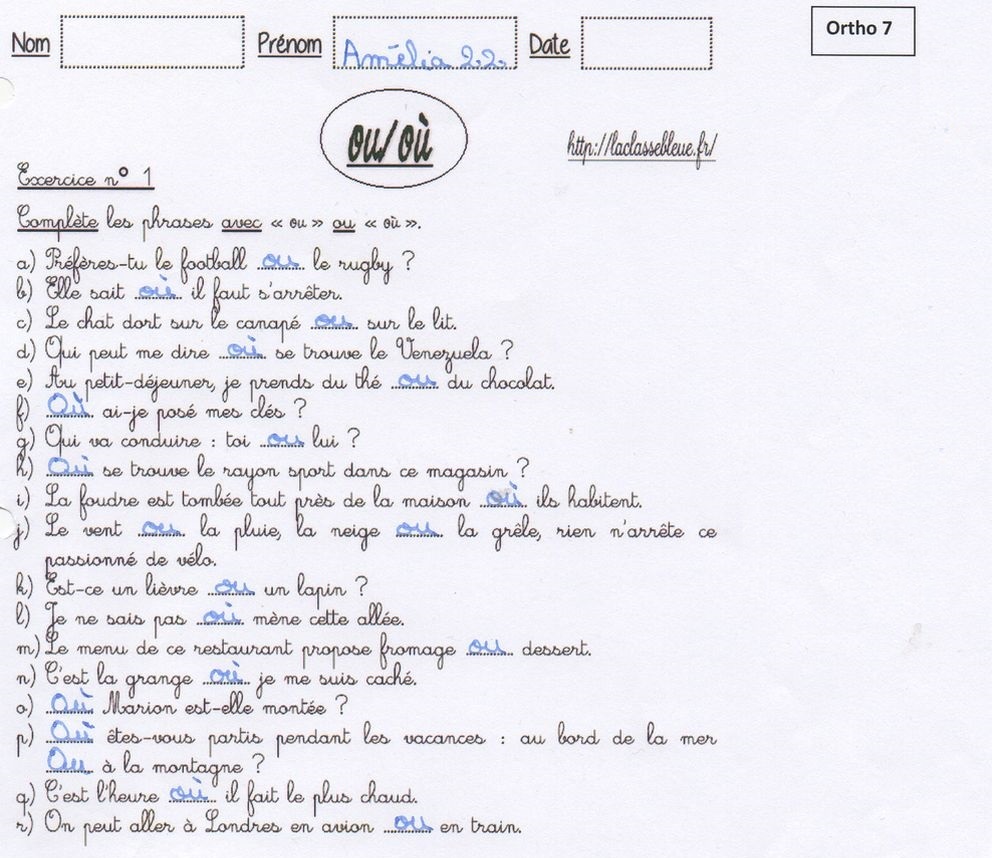 Nom Prénom Amélia 2.2. Date Ortho 7
ou/où
http://laclassebleue.fr/
Exercice n° 1
Complète les phrases avec « ou » ou « où ».
a) Préfères-tu le football ou le rugby ?
b) Elle sait où il faut s'arrêter.
c) Le chat dort sur le canapé ou sur le lit.
d) Qui peut me dire où se trouve le Venezuela ?
e) Au petit-déjeuner, je prends du thé ou du chocolat.
f) Où ai-je posé mes clés ?
g) Qui va conduire : toi ou lui ?
h) Où se trouve le rayon sport dans ce magasin ?
i) La foudre est tombée tout près de la maison où ils habitent.
j) Le vent ou la pluie, la neige ou la grêle, rien n'arrête ce
passionné de vélo.
k) Est-ce un lièvre ou un lapin ?
l) Je ne sais pas où mène cette allée.
m) Le menu de ce restaurant propose fromage ou dessert.
n) C'est la grange où je me suis caché.
o) Où Marion est-elle montée ?
p) Où êtes-vous partis pendant les vacances : au bord de la mer
Ou à la montagne ?
q) C'est l'heure où il fait le plus chaud.
r) On peut aller à Londres en avion ou en train.